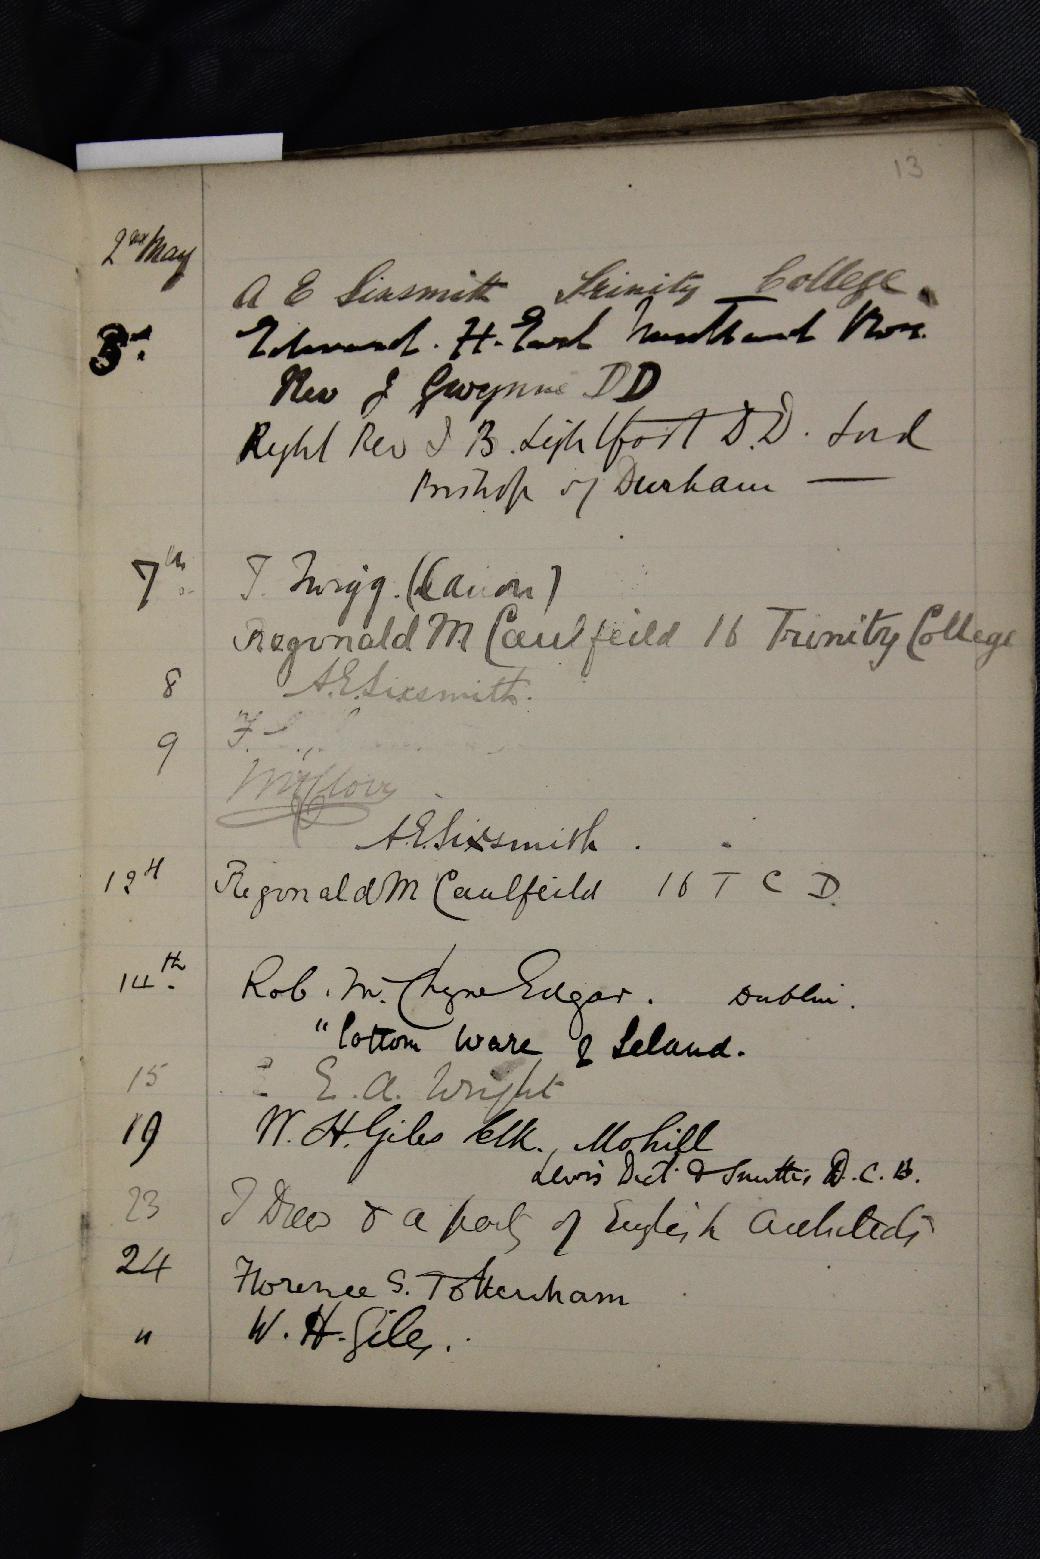 13
2nd May
A E Sixsmith Trinity College
3rd Edward. H. Earl
Rev J Gwynne DD
Right Rev J B. Lightfoot D.D. Lord
Bishop of Durham —
7th T. Twigg. (Canon)
Reginald M Caulfeild 16 Trinity College
8 A.E. Sixsmith.
9 F.
A.E. Sixsmith.
12th Reginald M Caulfeild 16 T C D.
14th. Rob. McCheyne Edgar. Dublin.
" Cottom Ware & Leland.
15 E. A. Wright
19 W. H. Giles Clk., Mohill
Lewis Dict. & Smith's D.C.B.
23 J Drew & a party of English Architects
24 Florence S. Tottenham
" W. H. Giles.